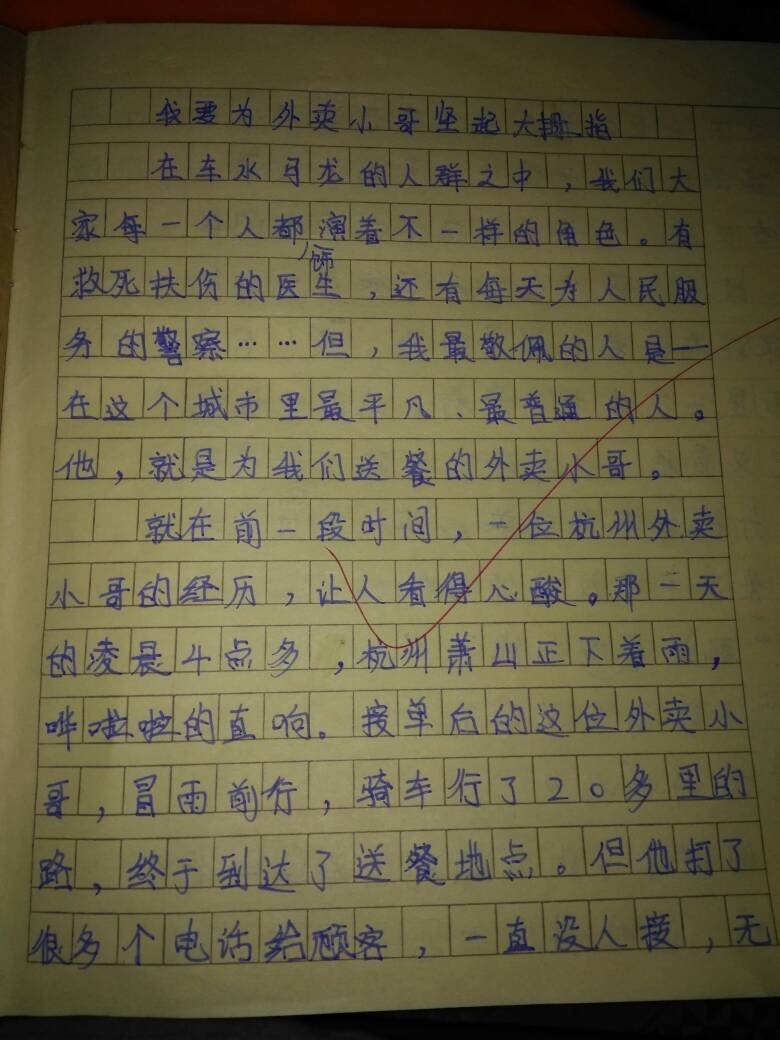 我要为外卖小哥坚起大拇指
在车水马龙的人群之中，我们大
家每一个人都演着不一样的角色。有
饰
救死扶伤的医生，还有每天为人民服
务的警察……但，我最敬佩的人是一
在这个城市里最平凡、最普通的人。
他，就是为我们送餐的外卖小哥。
就在前一段时间，一位杭州外卖
小哥的经历，让人看得心酸。那一天
的凌晨4点多，杭州萧山正下着雨，
哗啦啦的直响。接单后的这位外卖小
哥，冒雨前行，骑车行了20多里的
路，终于到达了送餐地点。但他打了
很多个电话给顾客，一直没人接，无